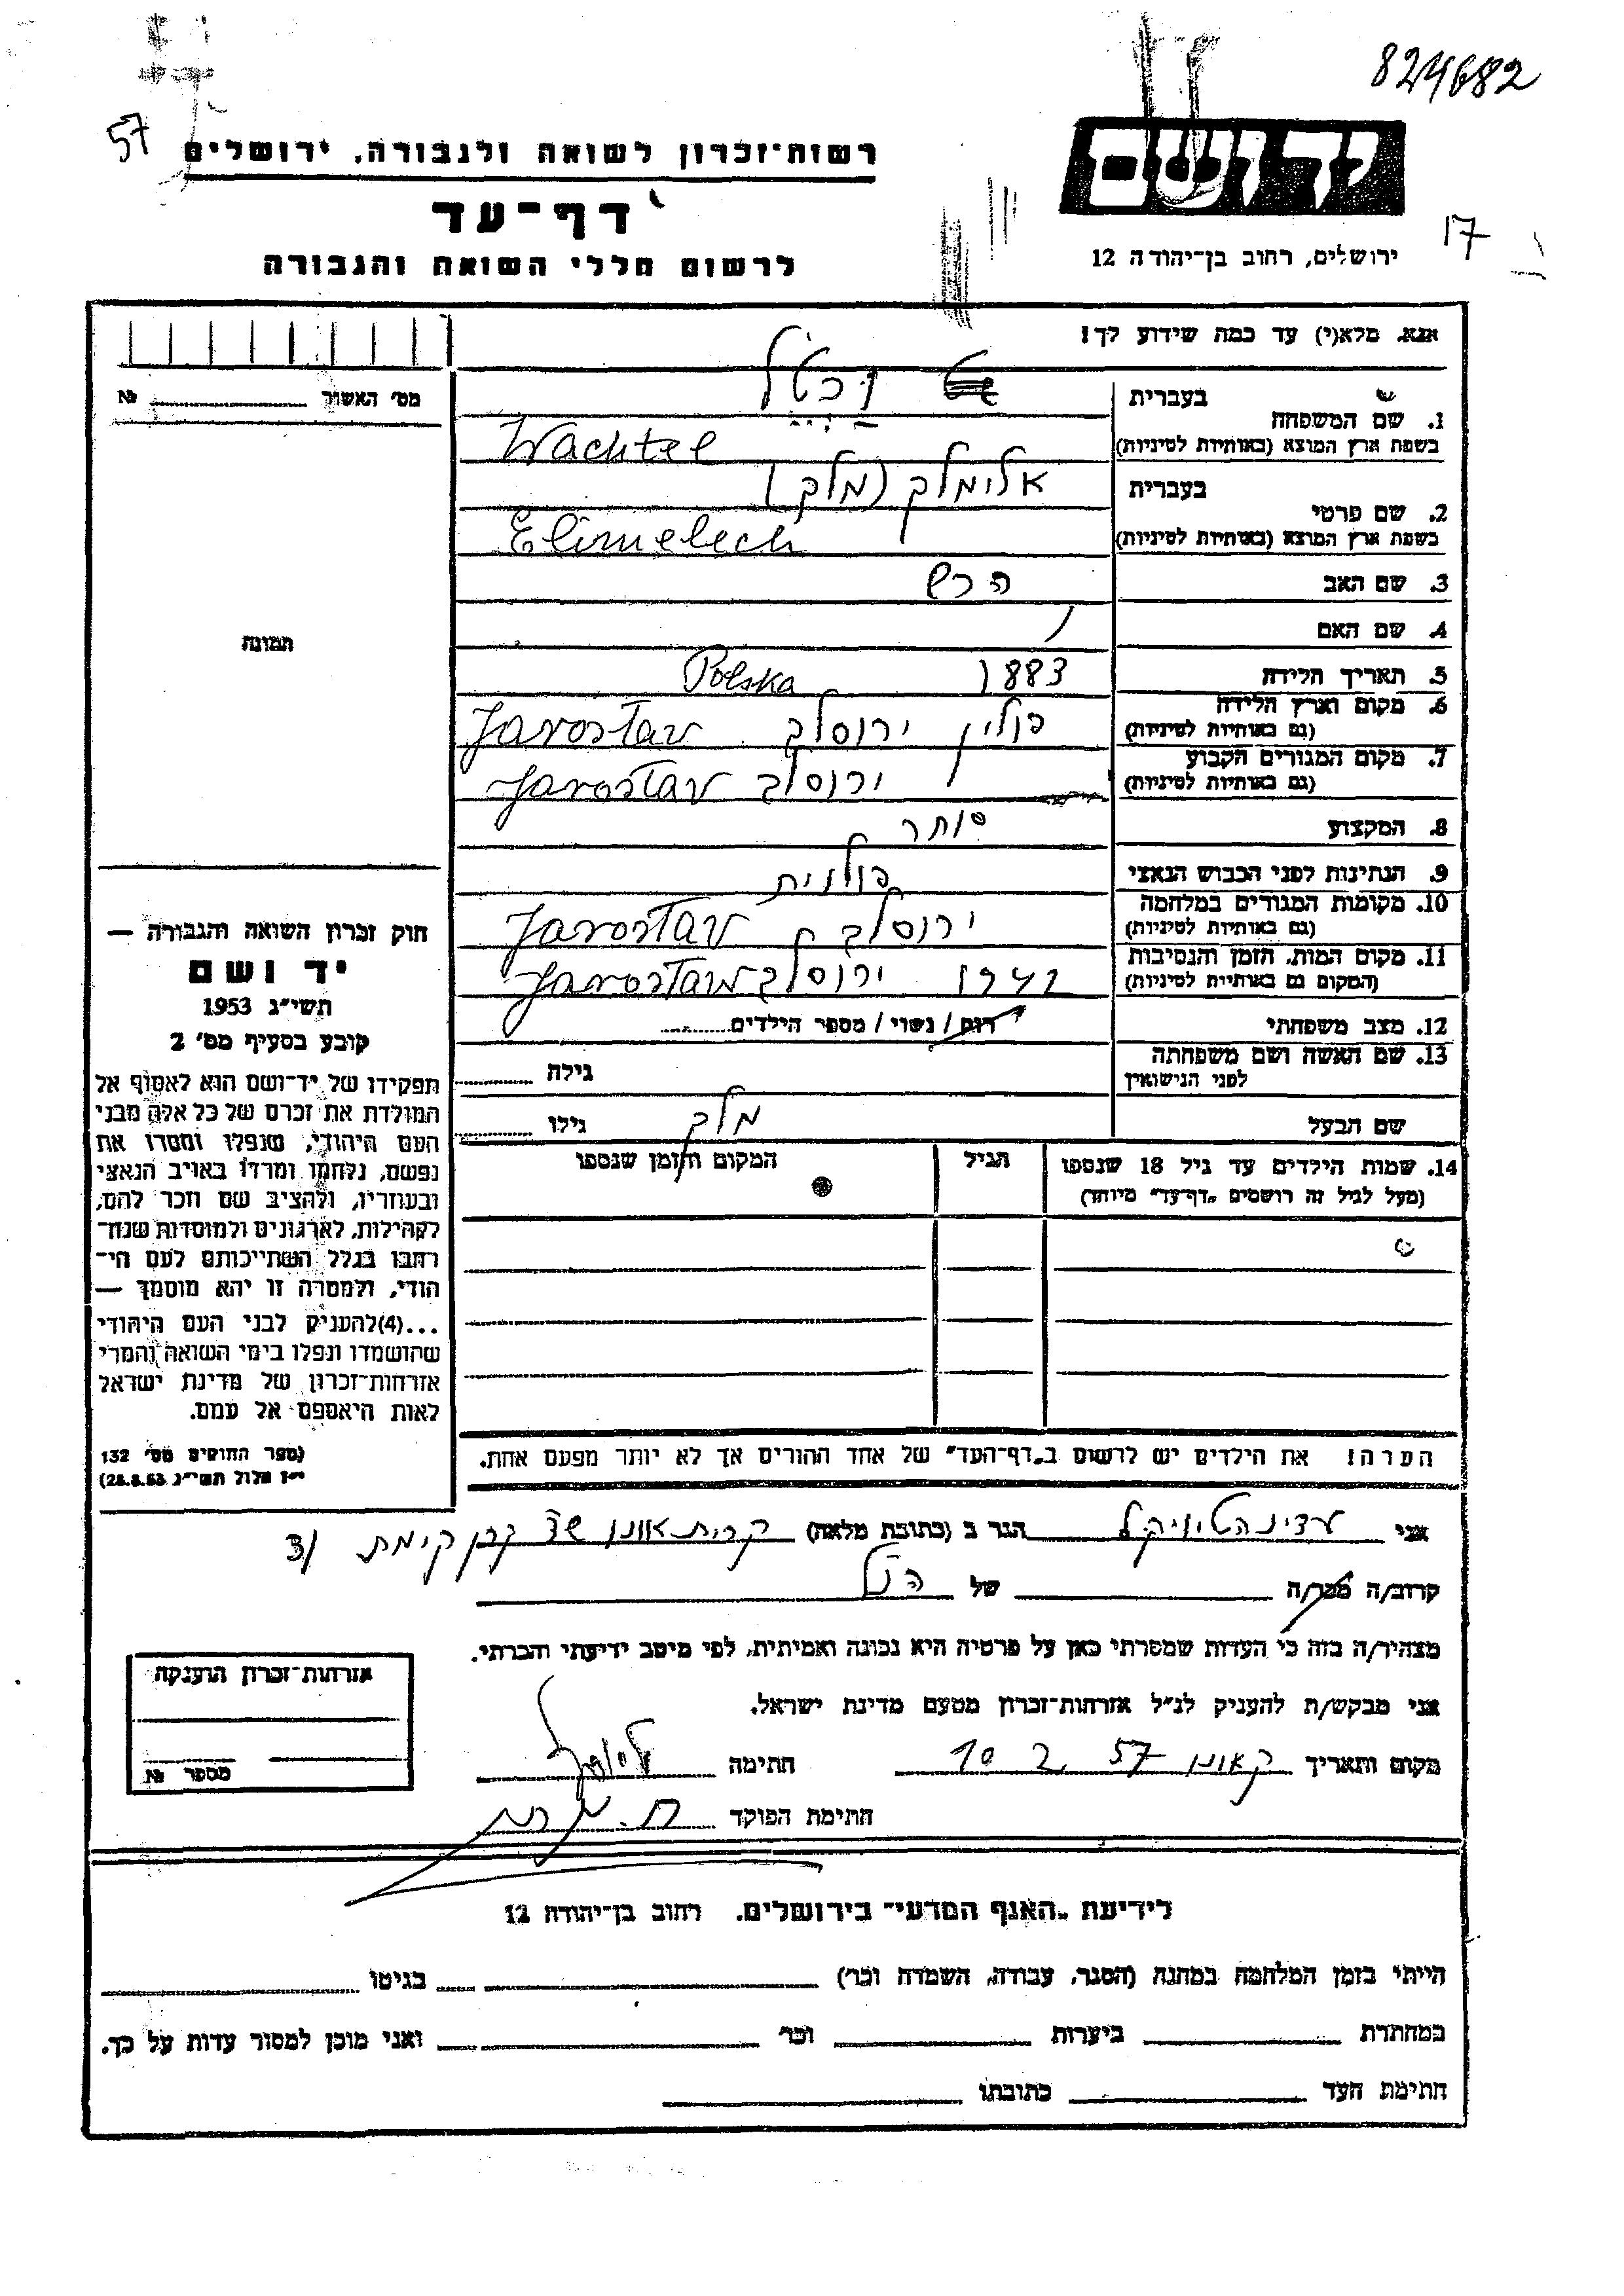 824682
57
יד ושם
רשות־זכרון לשואה ולגבורה, ירושלים
דף־עד
17
ירושלים, רחוב בן־יהודה 12
לרשום חללי השואה והגבורה
אנא, מלא(י) עד כמה שידוע לך!
מס' האשור № 
1. שם המשפחה בעברית וכטל
בשפת ארץ המוצא (באותיות לטיניות) Wachtel
2. שם פרטי בעברית אלימלך (מלך)
בשפת ארץ המוצא (באותיות לטיניות) Elimelech
3. שם האב הרש
4. שם האם
תמונה
5. תאריך הלידה 1883 Polska
6. מקום וארץ הלידה (גם באותיות לטיניות) פולין ירוסלב Jarostav
7. מקום המגורים הקבוע (גם באותיות לטיניות) ירוסלב Jarostav
8. המקצוע סוחר
9. הנתינות לפני הכבוש הנאצי פולנית
10. מקומות המגורים במלחמה (גם באותיות לטיניות) ירוסלב Jarostav
11. מקום המות, הזמן והנסיבות (המקום גם באותיות לטיניות) ירוסלב Jarostaw
12. מצב משפחתי רווק / נשוי / מספר הילדים
13. שם האשה ושם משפחתה לפני הנישואין גילה
שם הבעל מלך גילו
14. שמות הילדים עד גיל 18 שנספו הגיל המקום והזמן שנספו
(מעל לגיל זה רושמים „דף־עד" מיוחד)
חוק זכרון השואה והגבורה —
יד ושם
תשי"ג 1953
קובע בסעיף מס' 2
תפקידו של יד־ושם הוא לאסוף אל
המולדת את זכרם של כל אלה מבני
העם היהודי, שנפלו ומסרו את
נפשם, נלחמו ומרדו באויב הנאצי
ובעוזריו, ולהציב שם וזכר להם,
לקהילות, לארגונים ולמוסדות שנח־
רבו בגלל השתייכותם לעם הי־
הודי, ולמטרה זו יהא מוסמך —
...(4) להעניק לבני העם היהודי
שהושמדו ונפלו בימי השואה והמרי
אזרחות־זכרון של מדינת ישראל
לאות היאספם אל עמם.
(ספר החוקים מס' 132
י"ז אלול תשי"ג 28.8.53)
הערה! את הילדים יש לרשום ב„דף־העד" של אחד ההורים אך לא יותר מפעם אחת.
אני הגר ב (כתובת מלאה) קרית אונו שד קרן קימת
קרוב/ה מכר/ה של הנ"ל
מצהיר/ה בזה כי העדות שמסרתי כאן על פרטיה היא נכונה ואמיתית, לפי מיטב ידיעתי והכרתי.
אני מבקש/ת להעניק לנ"ל אזרחות־זכרון מטעם מדינת ישראל.
מקום ותאריך ק. אונו 10 2 57 חתימה
חתימת הפוקד
אזרחות־זכרון הוענקה
מספר №
לידיעת „האגף המדעי" בירושלים. רחוב בן־יהודה 12
הייתי בזמן המלחמה במחנה (הסגר, עבודה, השמדה וכו') בגיטו
במחתרת ביערות וכו' ואני מוכן למסור עדות על כך.
חתימת העד כתובתו